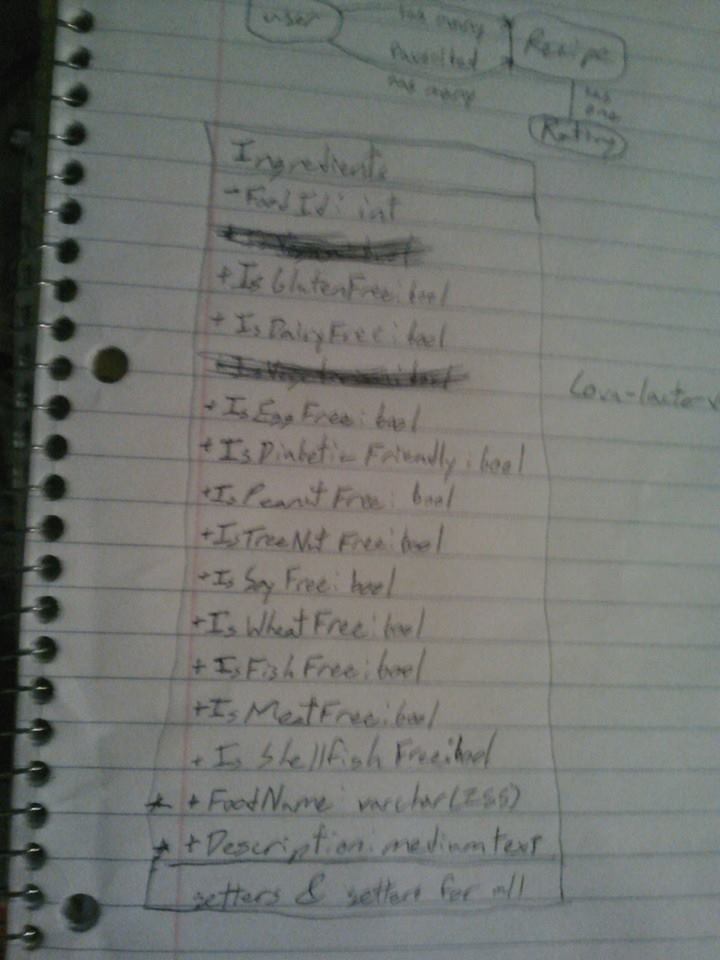 user
has many
Recipe
Favorited
has many
has
one
Rating
Ingredients
- Food Id: int
+ Is GlutenFree: bool
+ Is DairyFree: bool
+ Is Egg Free: bool
+ Is Diabetic Friendly: bool
+ Is Peanut Free: bool
+ Is TreeNut Free: bool
+ Is Soy Free: bool
+ Is Wheat Free: bool
+ Is Fish Free: bool
+ Is Meat Free: bool
+ Is Shellfish Free: bool
* + FoodName: varchar(255)
* + Description: mediumtext
getters & setters for all